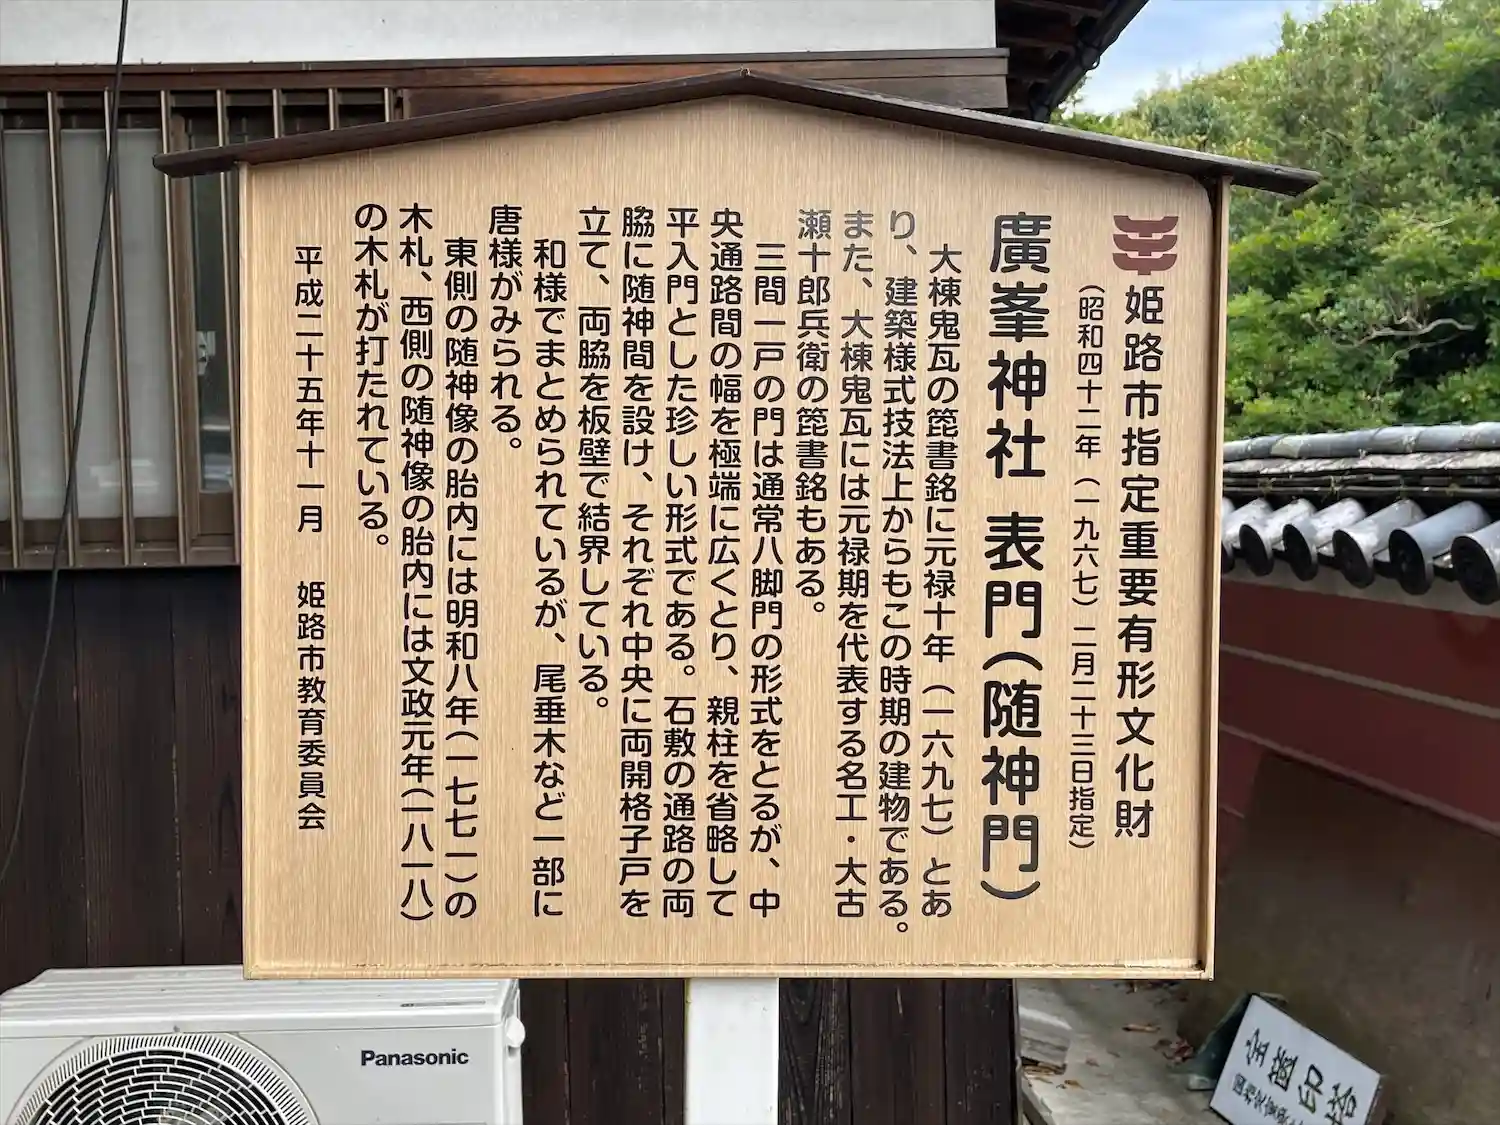 姫路市指定重要有形文化財
（昭和四十二年（一九六七）二月二十三日指定）
廣峯神社 表門（随神門）
大棟鬼瓦の箆書銘に元禄十年（一六九七）とあ
り、建築様式技法上からもこの時期の建物である。
また、大棟鬼瓦には元禄期を代表する名工・大古
瀬十郎兵衛の箆書銘もある。
三間一戸の門は通常八脚門の形式をとるが、中
央通路間の幅を極端に広くとり、親柱を省略して
平入門とした珍しい形式である。石敷の通路の両
脇に随神間を設け、それぞれ中央に両開格子戸を
立て、両脇を板壁で結界している。
和様でまとめられているが、尾垂木など一部に
唐様がみられる。
東側の随神像の胎内には明和八年（一七七一）の
木札、西側の随神像の胎内には文政元年（一八一八）
の木札が打たれている。
平成二十五年十一月 姫路市教育委員会
Panasonic
宝篋印塔